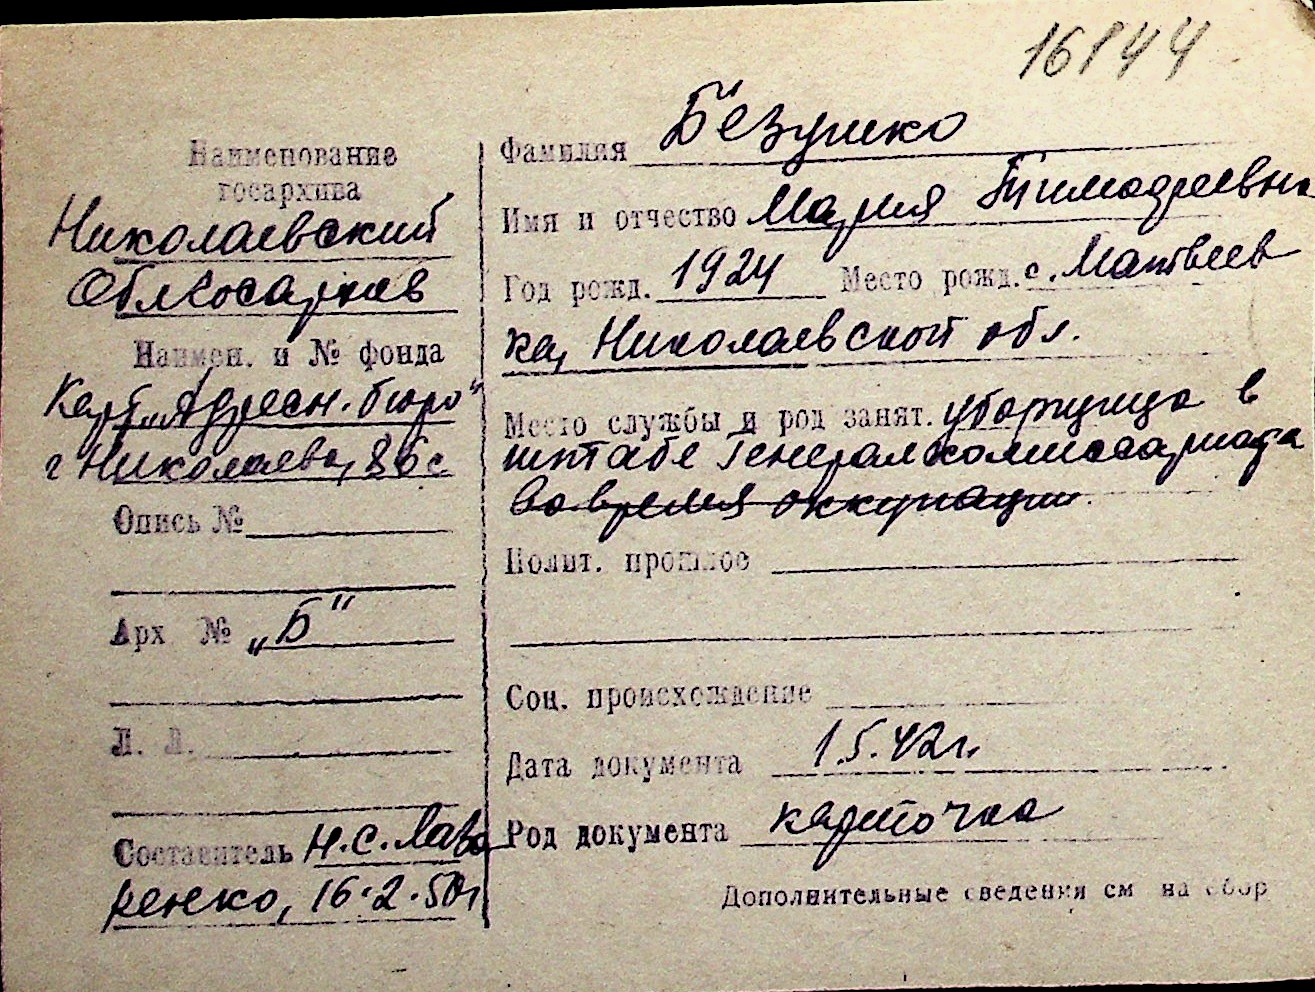 16144
Наименование
госархива
Николаевский
Облгосархив
Наимен. и № фонда
Карт. „Адресн. бюро"
г Николаева, 86с
Опись №
Арх № „Б"
Л. Л.
Составитель Н.С. Лаво
ренко, 16.2.50г
Фамилия Безушко
Имя и отчество Мария Тимофеевна
Год рожд. 1924 Место рожд. с. Матвеев
ка, Николаевской обл.
Место службы и род занят. уборщица в
штабе Генералкомиссариата
во время оккупации.
Полит. прошлое
Соц. происхождение
Дата документа 1.5.42г.
Род документа карточка
Дополнительные сведения см на обор